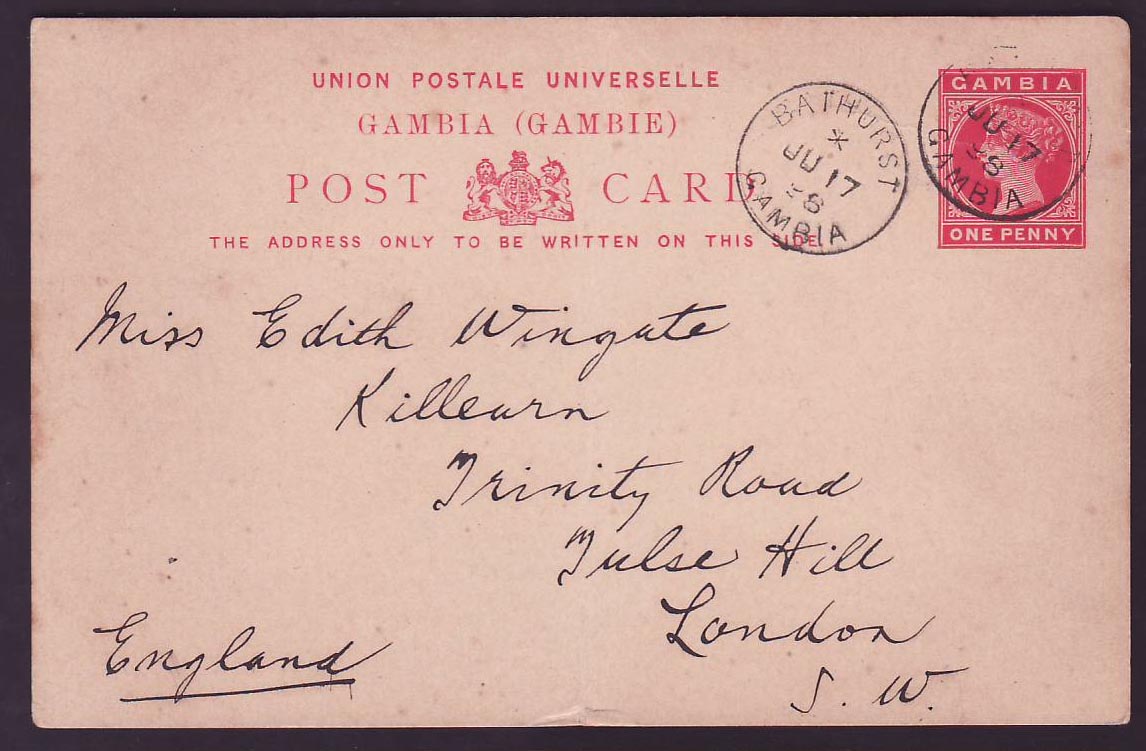 UNION POSTALE UNIVERSELLE
GAMBIA (GAMBIE)
POST CARD
THE ADDRESS ONLY TO BE WRITTEN ON THIS SIDE.
BATHURST
*
JU 17
98
GAMBIA
JU 17
98
GAMBIA
GAMBIA
ONE PENNY
Miss Edith Wingate
Killearn
Trinity Road
Tulse Hill
London
S. W.
England